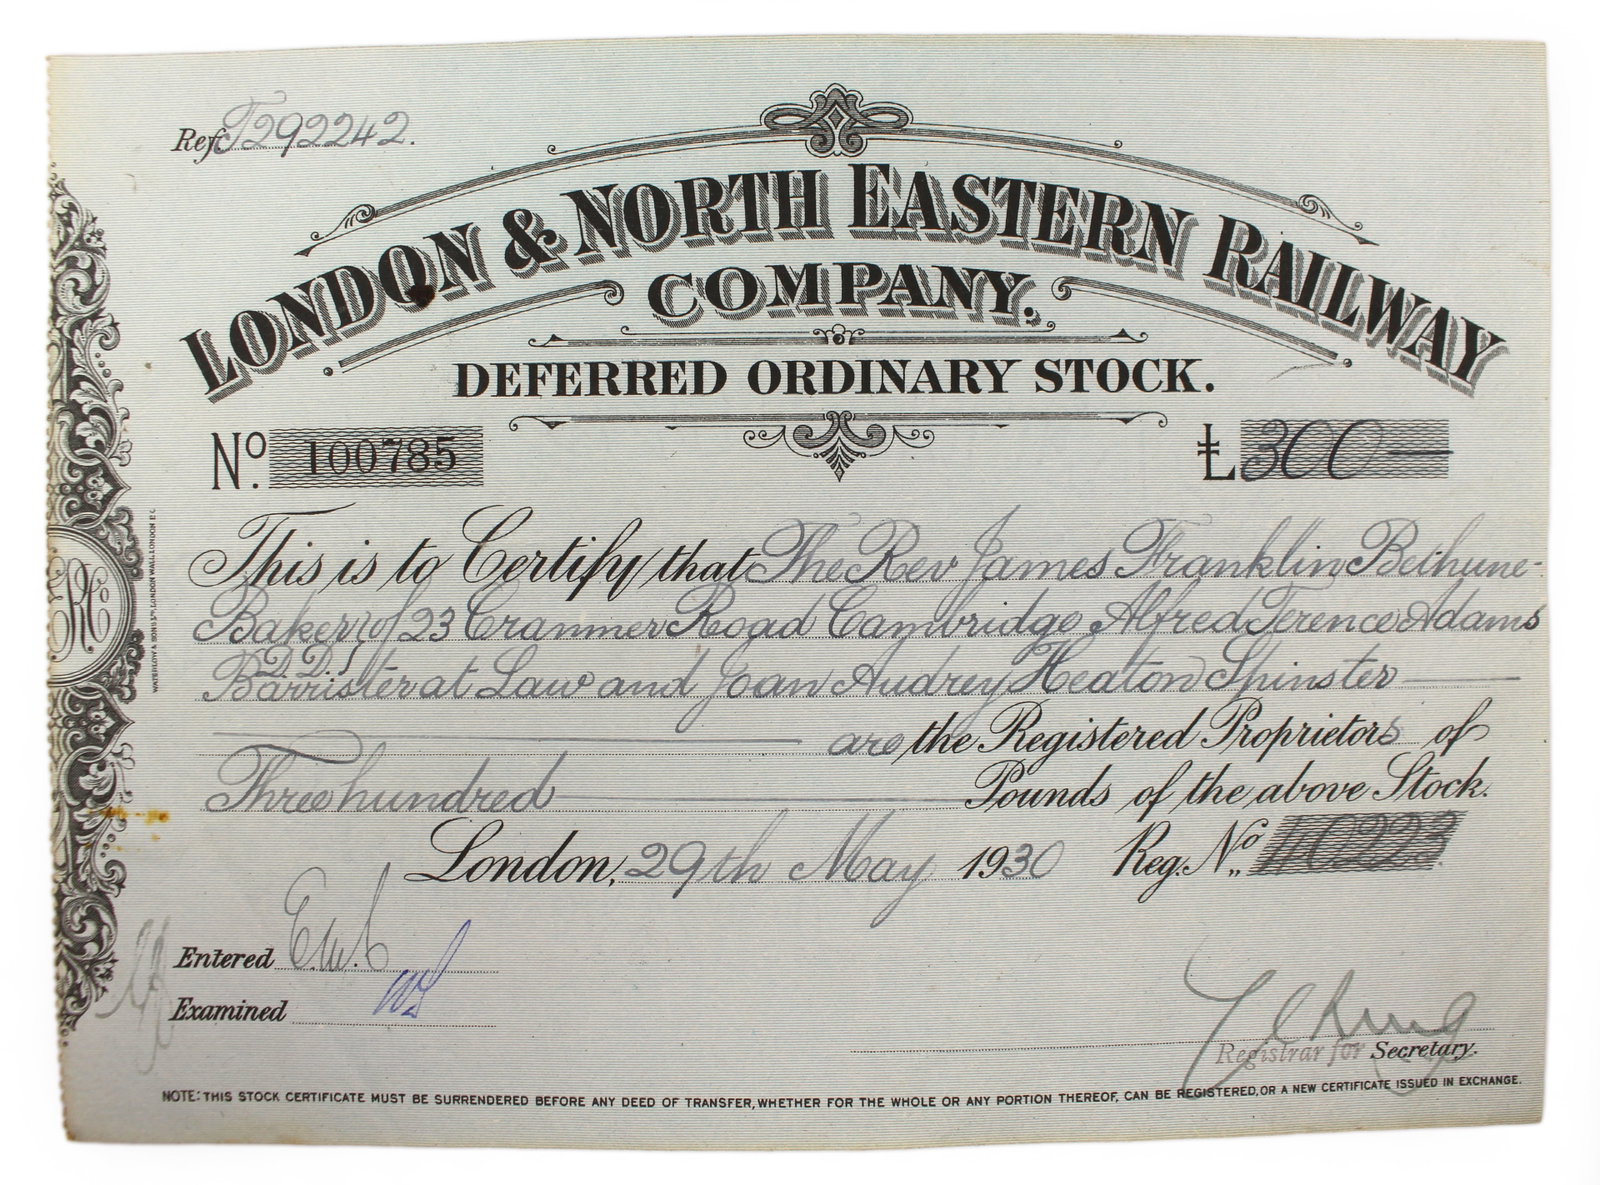 Ref. T292242.
LONDON & NORTH EASTERN RAILWAY
COMPANY.
DEFERRED ORDINARY STOCK.
No. 100785
£300
This is to Certify that The Rev James Franklin Bethune-
Baker of 23 Cranmer Road Cambridge Alfred Terence Adams
D.D.
Barrister at Law and Joan Audrey Heaton Spinster
are the Registered Proprietors of
Three hundred Pounds of the above Stock.
London, 29th May 1930 Reg. No. 40223
Entered E.W.S
Examined
Registrar for Secretary.
NOTE: THIS STOCK CERTIFICATE MUST BE SURRENDERED BEFORE ANY DEED OF TRANSFER, WHETHER FOR THE WHOLE OR ANY PORTION THEREOF, CAN BE REGISTERED, OR A NEW CERTIFICATE ISSUED IN EXCHANGE.
WATERLOW & SONS LTD, LONDON WALL, LONDON E.C.